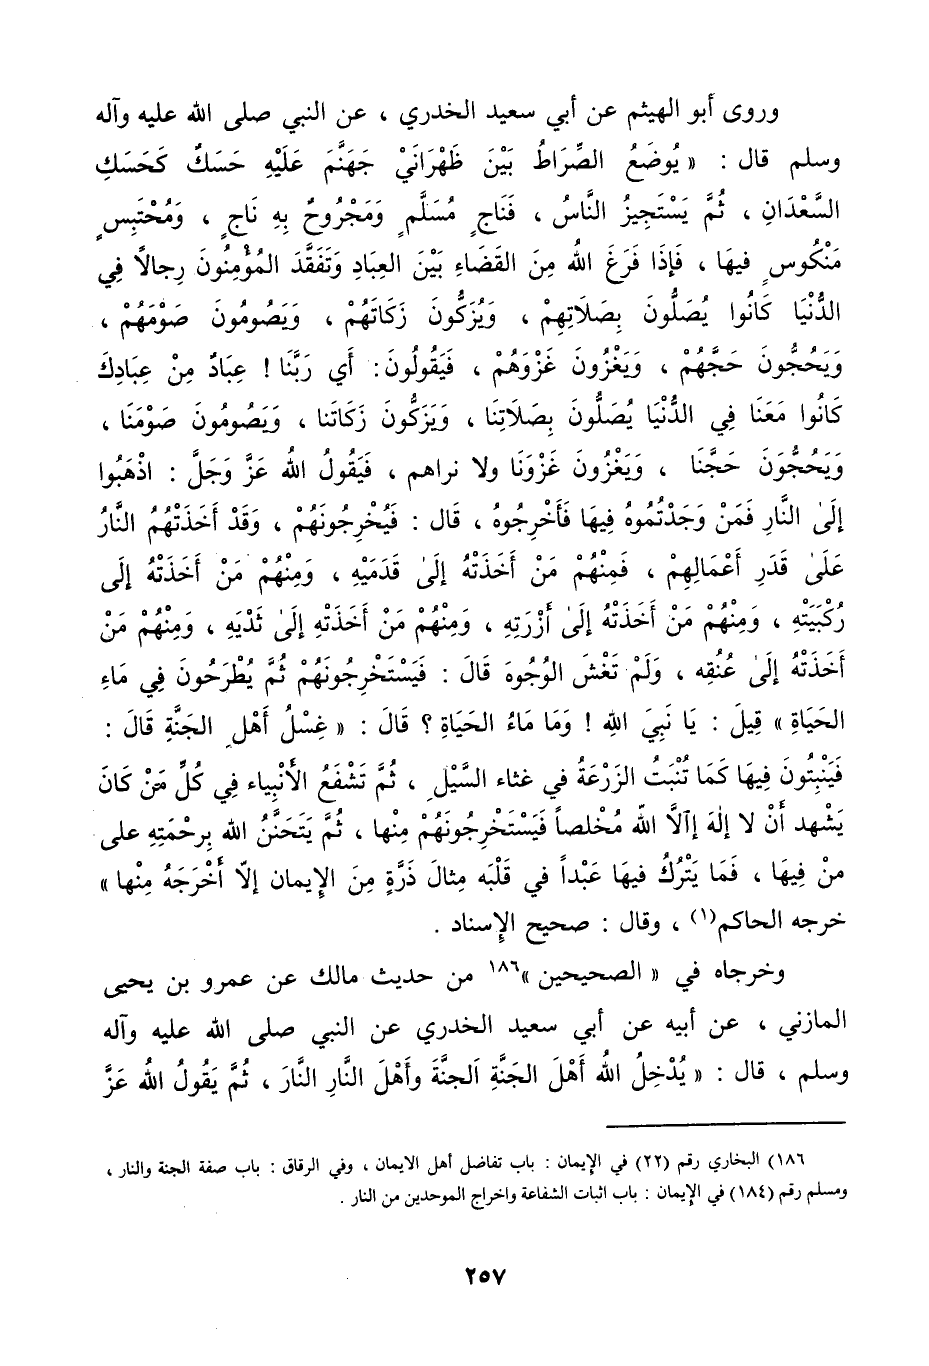 وروى أبو الهيثم عن أبي سعيد الخدري ، عن النبي صلى الله عليه وآله
وسلم قال : « يُوضَعُ الصِّرَاطُ بَيْنَ ظَهْرَانَيْ جَهَنَّمَ عَلَيْهِ حَسَكٌ كَحَسَكِ
السَّعْدَانِ ، ثُمَّ يَسْتَجِيزُ النَّاسُ ، فَنَاجٍ مُسَلَّمٍ وَمَجْرُوحٌ بِهِ نَاجٍ ، وَمُحْتَبِسٍ
مَنْكُوسٍ فيهَا ، فَإذَا فَرَغَ اللهُ مِنَ القَضَاءِ بَيْنَ العِبَادِ وَتَفَقَّدَ المُؤْمِنُونَ رِجالاً فِي
الدُّنْيَا كَانُوا يُصَلُّونَ بِصَلَاتِهِمْ ، وَيُزَكُّونَ زَكَاتَهُمْ ، وَيَصُومُونَ صَوْمَهُمْ ،
وَيَحُجُّونَ حَجَّهُمْ ، وَيَغْزُونَ غَزْوَهُمْ ، فَيَقُولُونَ: أَي رَبَّنَا ! عِبَادٌ مِنْ عِبَادِكَ
كَانُوا مَعَنَا فِي الدُّنْيَا يُصَلُّونَ بِصَلَاتِنَا ، وَيَزَكُّونَ زَكَاتَنا ، وَيَصُومُونَ صَوْمَنَا ،
وَيَحُجُّوَنَ حَجَّنَا ، وَيَغْزُونَ غَزْوَنَا ولا نراهم ، فَيَقُولُ اللهُ عَزَّ وَجَلَّ : اذْهَبُوا
إلَىٰ النَّارِ فَمَنْ وَجَدْتُمُوهُ فِيهَا فَأَخْرِجُوهُ ، قَال : فَيُخْرِجُونَهُمْ ، وَقَدْ أَخَذَتْهُمُ النَّارُ
عَلَىٰ قَدَرِ أَعْمَالِهِمْ ، فَمِنْهُمْ مَنْ أَخَذَتْهُ إلَىٰ قَدَمَيْهِ ، وَمِنْهُمْ مَنْ أَخَذَتْهُ إلَى
رُكْبَيَتْهِ ، وَمِنْهُمْ مَنْ أَخَذَتْهُ إلَىٰ أَزْرَتِهِ ، وَمِنْهُمْ مَنْ أَخَذَتْهِ إلَىٰ ثَدْيَهِ ، وَمِنْهُمْ مَنْ
أَخَذَتْهُ إلَىٰ عُنُقِه ، وَلَمْ تَغْشَ الوُجُوهَ قَالَ : فَيَسْتَخْرِجُونَهُمْ ثُمَّ يُطْرَحُونَ فِي مَاءِ
الحَيَاةِ » قِيلَ : يَا نَبِيَ اللهِ ! وَمَا مَاءُ الحَيَاةِ ؟ قَالَ : « غِسْلُ أَهْلِ الجَنَّةِ قَالَ :
فَيَنْبِتُونَ فِيهَا كَمَا تُنْبَتُ الزَرْعَةُ في غثاء السَّيْلِ ، ثُمَّ تَشْفَعُ الأَنْبِياء فِي كُلِّ مَنْ كَانَ
يَشْهد أَنْ لا إلهَ إآلاَّ اللهُ مُخْلصاً فَيَسْتَخْرِجُونَهُمْ مِنْها ، ثُمَّ يَتَحَنَّنُ الله بِرحْمَتِهِ على
منْ فِيهَا ، فَمَا يَتْرُكُ فيهَا عَبْداً في قَلْبَه مِثالَ ذَرَّةٍ مِنَ الإيمان إلّا أَخْرَجَهُ مِنْها »
خرجه الحاكم(١) ، وقال : صحيح الإسناد .
وخرجاه في « الصحيحين »١٨٦ من حديث مالك عن عمرو بن يحيى
المازني ، عن أبيه عن أبي سعيد الخدري عن النبي صلى الله عليه وآله
وسلم ، قال : « يُدْخِلُ اللهُ أَهْلَ الجَنَّةِ اَلجنَّةَ وأَهْلَ النَّارِ النَّارَ ، ثُمَّ يَقُولُ اللهُ عَزَّ
١٨٦) البخاري رقم (٢٢) في الإيمان : باب تفاضل أهل الايمان ، وفي الرقاق : باب صفة الجنة والنار ،
ومسلم رقم (١٨٤) في الإيمان : باب اثبات الشفاعة واخراج الموحدين من النار .
٢٥٧